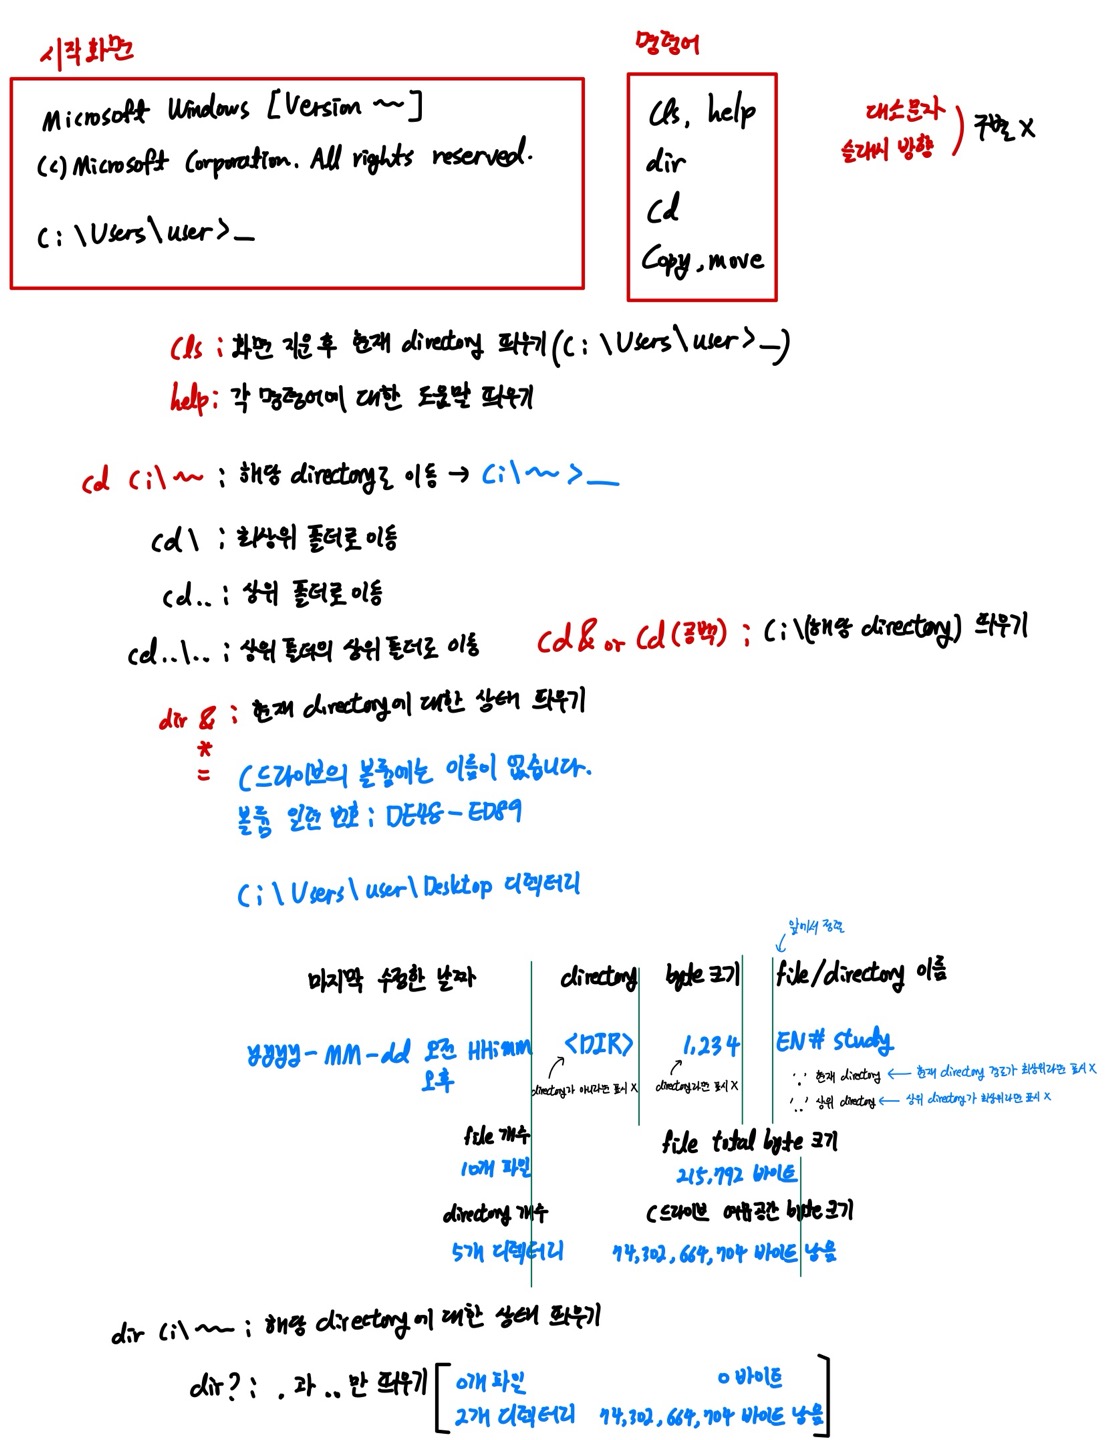 시작화면
명령어
Microsoft Windows [Version ~~]
(c) Microsoft Corporation. All rights reserved.
C:\Users\user>_
cls, help
dir
cd
copy, move
대소문자
슬래씨 방향
) 구별 X
cls : 화면 지운 후 현재 directory 띄우기 (C:\Users\user>_)
help : 각 명령어에 대한 도움말 띄우기
cd C:\~~ : 해당 directory로 이동 → C:\~~>_
cd\ : 최상위 폴더로 이동
cd.. : 상위 폴더로 이동
cd..\.. : 상위 폴더의 상위 폴더로 이동
cd& or cd(공백) : C:\(해당 directory) 띄우기
dir & : 현재 directory에 대한 상태 띄우기
*
=
C 드라이브의 볼륨에는 이름이 없습니다.
볼륨 일련 번호 : DE48-ED89
C:\Users\user\Desktop 디렉터리
앞에서 정렬
마지막 수정한 날짜 directory byte 크기 file/directory 이름
yyyy-MM-dd 오전 HH:mm <DIR> 1,234 EN# study
오후
directory가 아니라면 표시 X directory라면 표시 X
'.' 현재 directory ← 현재 directory 경로가 최상위라면 표시 X
'..' 상위 directory ← 상위 directory가 최상위라면 표시 X
file 개수 file total byte 크기
10개 파일 215,792 바이트
directory 개수 C드라이브 여유공간 byte 크기
5개 디렉터리 74,302,664,704 바이트 남음
dir C:\~~ : 해당 directory에 대한 상태 띄우기
dir? : . 과 .. 만 띄우기 [ 0개 파일 0 바이트
2개 디렉터리 74,302,664,704 바이트 남음 ]